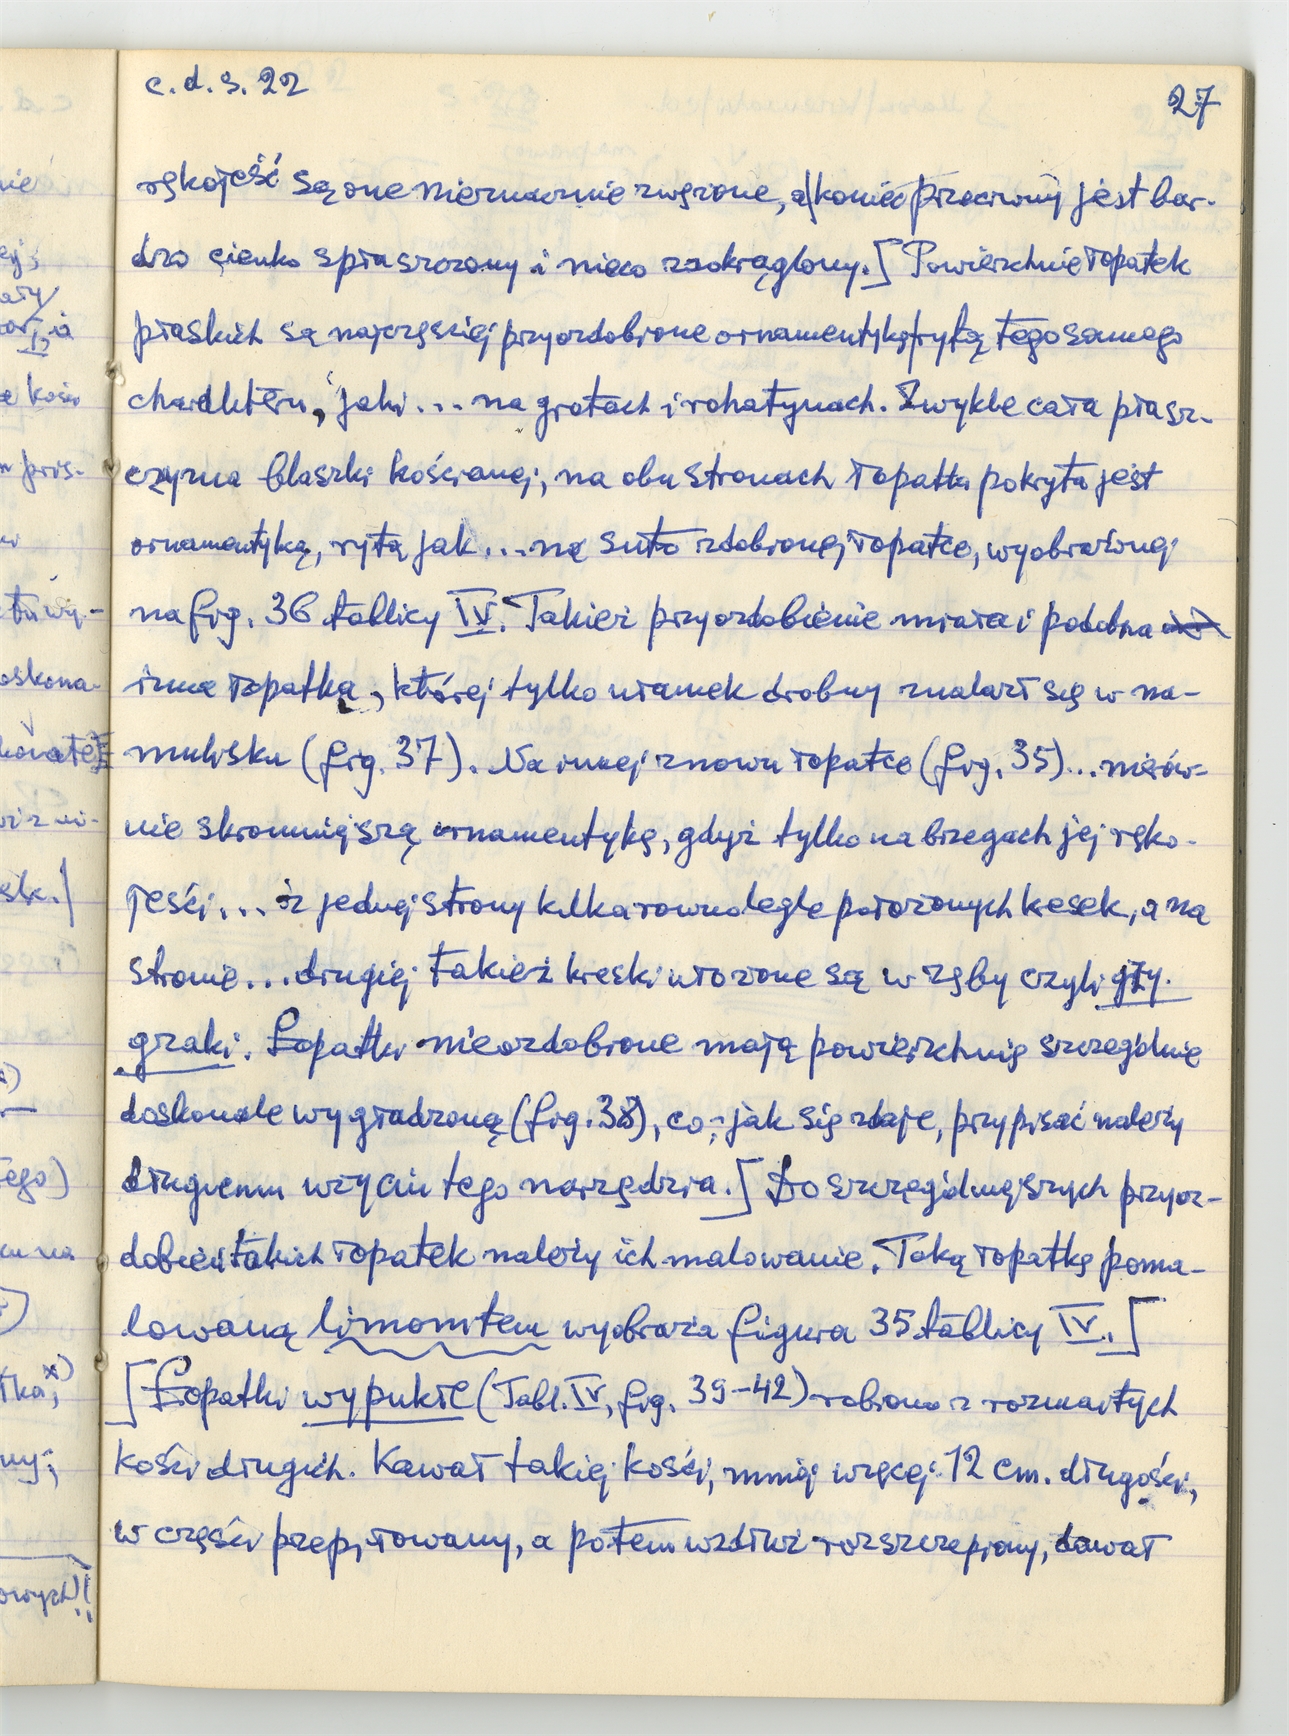 c.d.s. 22
27
rękojeść są one nieznacznie zwężone, a koniec przeciwny jest bar-
dzo cienko spłaszczony i nieco zaokrąglony.] Powierzchnie łopatek
płaskich są najczęściej przyozdobione ornamentyką rytą tego samego
charakteru, jaki ... na grotach i rohatynach. Zwykle cała płasz-
czyzna blaszki kościanej, na obu stronach łopatki pokryta jest
ornamentyką, rytą jak ... na suto zdobionej łopatce, wyobrażonej
na fig. 36 tablicy IV. Takież przyozdobienie miała i podobna
inna łopatka, której tylko ułamek drobny znalazł się w na-
mulisku (fig. 37). Na innej znowu łopatce (fig. 35)... nierów-
nie skromniejszą ornamentykę, gdyż tylko na brzegach jej ręko-
jeści ... z jednej strony kilka równolegle położonych kresek, a na
stronie ... drugiej takież kreski ułożone są w zęby czyli zy-
gzaki. Łopatki nieozdobione mają powierzchnię szczególnie
doskonale wygładzoną (fig. 38), co, jak się zdaje, przypisać należy
długiemu użyciu tego narzędzia.] Do szczególniejszych przyoz-
dobień takich łopatek należy ich malowanie. Taką łopatkę poma-
lowaną limonitem wyobraża figura 35 tablicy IV.]
[Łopatki wypukłe (Tabl. IV, fig. 39-42) robiono z rozwartych
kości długich. Kawał takiej kości, mniej więcej 12 cm. długości,
w części przepiłowany, a potem wzdłuż rozszczepiony, dawał